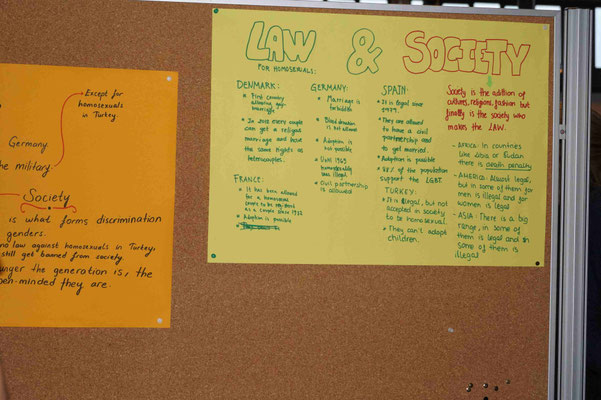 Except for
homosexuals
in Turkey
Germany.
the military.
Society
is what forms discrimination
genders.
no law against homosexuals in Turkey,
still get banned from society.
unger the generation is, the
pen-minded they are.
LAW & SOCIETY
FOR HOMOSEXUALS:
DENMARK:
First country
allowing gay
marriage
In 2012 every couple
can get a religous
marriage and have
the same rights as
heterocouples.
FRANCE:
It has been allowed
for a homosexual
couple to be
as a couple since
Adoption is possible
GERMANY:
Marriage is
forbidden
Blood donation
is not allowed
Adoption is
not possible
Until 1969
homosexuality
was illegal
Civil partnership
is allowed
SPAIN:
It is legal since
1979.
They are allowed
to have a civil
partnership and
to get married.
Adoption is possible
88% of the population
support the LGBT.
TURKEY:
It is legal, but not
accepted in society
to be homosexual.
They can't adopt
children.
Society is the adition of
cultures, religions, fashion but
finally is the society who
makes the LAW.
- AFRICA: In countries
like Libia or Sudan
there is death penalty
- AMERICA: Almost legal,
but in some of them for
men is illegal and for
women is legal
- ASIA: There is a big
range, in some of
them is legal and in
some of them is
illegal